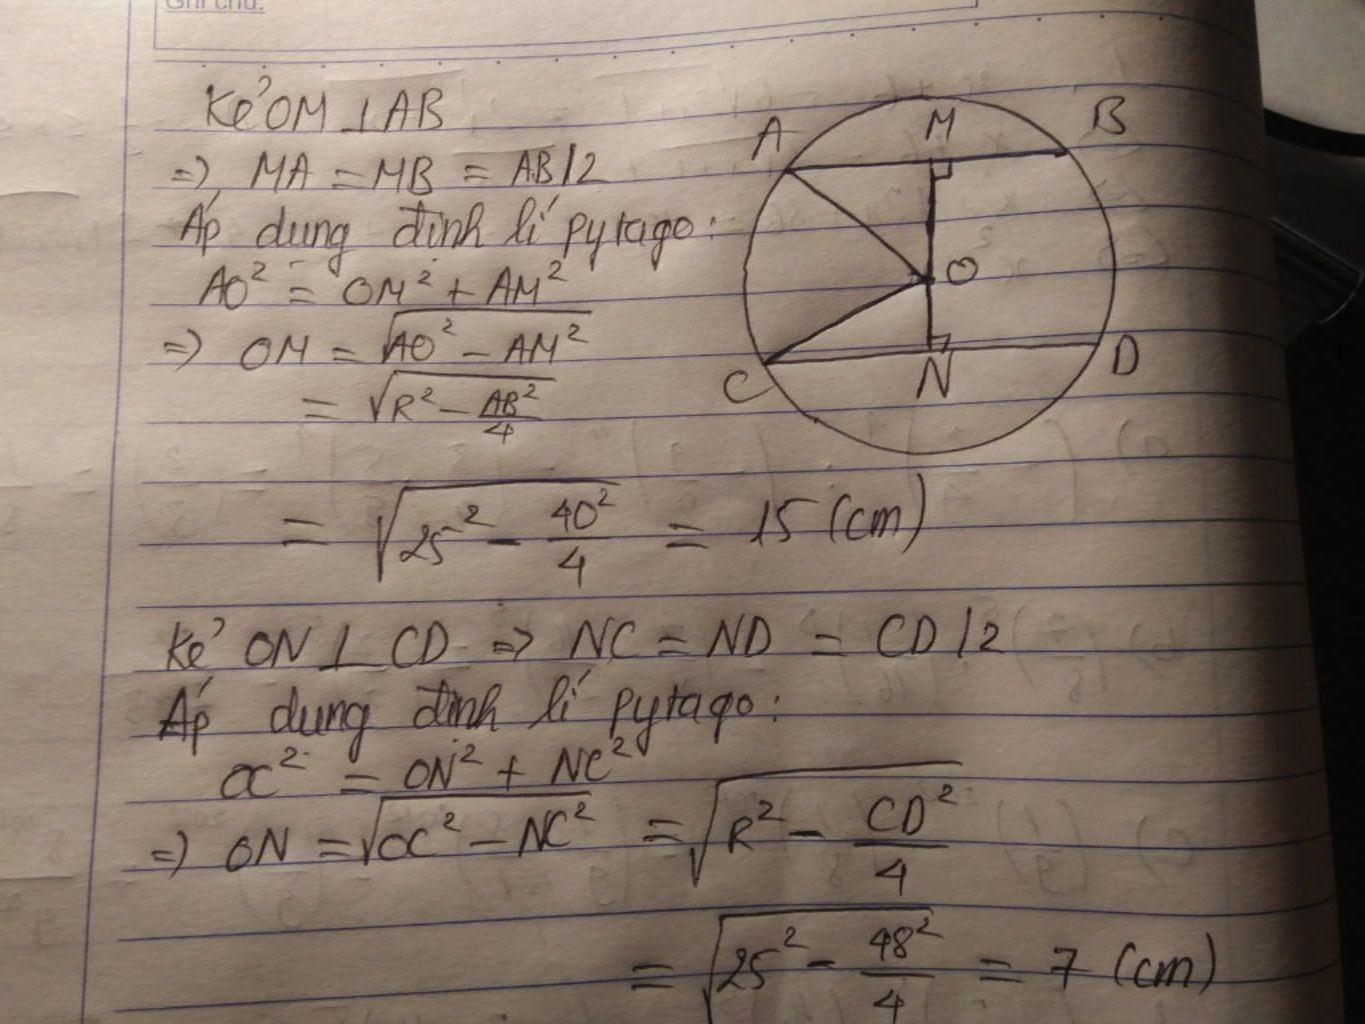 Ghi chú:
Kẻ OM ⊥ AB
=> MA = MB = AB/2
Áp dụng định lí pytago:
AO² = OM² + AM²
=> OM = √(AO² - AM²)
= √(R² - AB²/4)
= √(25² - 40²/4) = 15 (cm)
Kẻ ON ⊥ CD => NC = ND = CD/2
Áp dụng định lí pytago:
OC² = ON² + NC²
=> ON = √(OC² - NC²) = √(R² - CD²/4)
= √(25² - 48²/4) = 7 (cm)
A M B
O
C N D